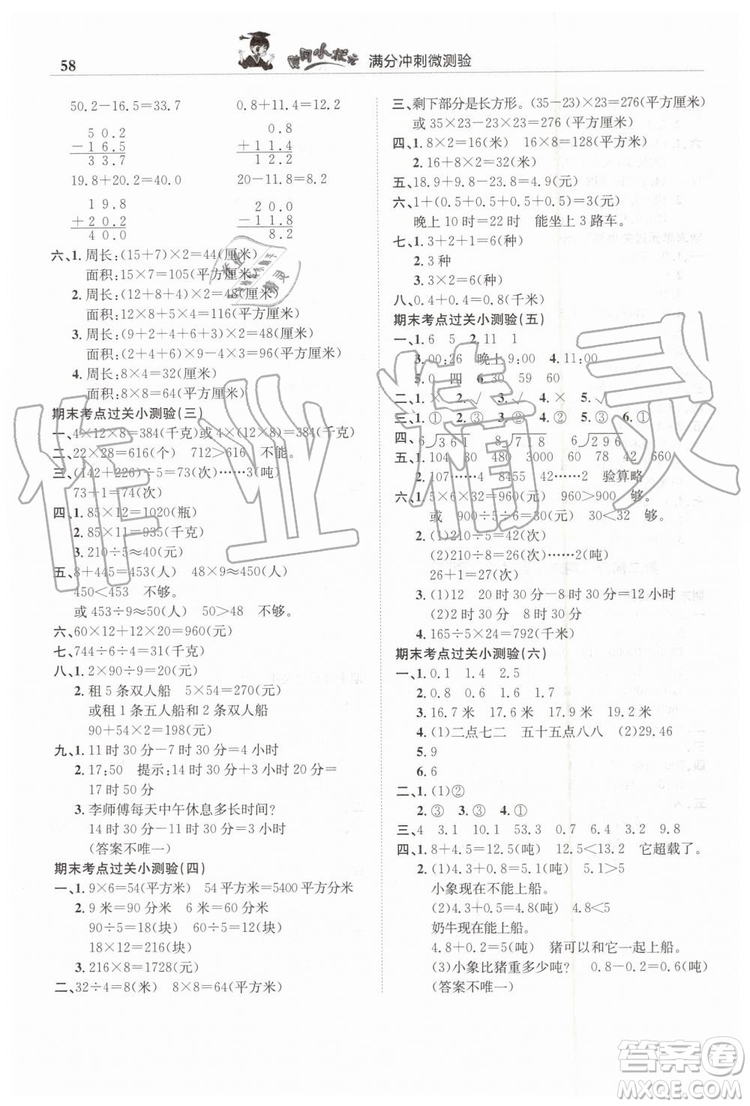 58
黄冈小状元
满分冲刺微测验
50.2-16.5=33.7 0.8+11.4=12.2
50.2
-16.5
33.7
0.8
+11.4
12.2
19.8+20.2=40.0 20.0-11.8=8.2
19.8
+20.2
40.0
20.0
-11.8
8.2
六、1. 周长:(15+7)×2=44(厘米)
面积:15×7=105(平方厘米)
2. 周长:(12+8+4)×2=48(厘米)
面积:12×8+5×4=116(平方厘米)
3. 周长:(9+2+4+6+3)×2=48(厘米)
面积:(9+2)×6+9×4=102(平方厘米)
4. 周长:8×4=32(厘米)
面积:8×8=64(平方厘米)
期末考点过关小测验(三)
一、4×12×8=384(千克)或4×(12×8)=384(千克)
二、22×28=616(个) 712>616 不能。
三、(142+226)÷5=73(次)……3(次)
73+1=74(次)
四、1. 85×12=1020(瓶)
2. 85×11=935(千克)
3. 210÷5≈40(元)
五、8+445=453(人) 48×9≈450(人)
453>450 不够。
或453÷9≈50(人) 50>48 不够。
六、60×12+12×20=960(元)
七、744÷6÷4=31(千克)
八、1. 2×90÷9=20(元)
2. 租5条双人船 5×54=270(元)
或租1条五人船 2条双人船
90+54×2=198(元)
九、1. 11时30分-7时30分=4小时
2. 17:50 提示:14时30分+3时20分
3. 李师傅每天中午休息多长时间?
14时30分-11时30分=3小时
(答案不唯一)
期末考点过关小测验(四)
一、1. 9×6=54(平方米) 54平方米=5400平方分米
2. 9米=90分米 6米=60分米
90÷5=18(块) 60÷5=12(块)
18×12=216(块)
3. 216×8=1728(元)
二、32÷4=8(米) 8×8=64(平方米)
三、剩下部分是长方形。(35-23)×23=276(平方厘米)
或35×23-23×23=276(平方厘米)
四、1. 8×2=16(米) 16×8=128(平方米)
2. 16+8×2=32(米)
五、18.9+4.9-23.8=4.9(元)
六、1+(0.5+0.5+0.5+0.5)=3(元)
晚上10时=22时 能坐上3路车。
七、1. 3+2+1=6(种)
2. 3种
3. 3×2=6(种)
八、0.4+0.4=0.8(千米)
期末考点过关小测验(五)
一、1. 6 5 2. 11 1
3. 00:26 晚上9:00 4. 11:00
5. 0 四 6. 30 59 60
二、1. × 2. √ 3. √ 4. × 5. √
三、1. ① 2. ① 3. ② 4. ② 5. ①
五、1. 300 60 1000 30 48 0
2. 154 114 8455 4422……2 验算略
六、1. 5×6×32=960(元) 960>900 够。
或 900÷5÷6=30(元) 30<32 够。
2. (1)210÷5=42(元)
(2)210÷8=26(元)……2(吨)
26+1=27(元)
3. (1)12 20时30分-8时30分=12小时
(2)12时-8时30分=3时30分
4. 165÷5×24=792(千米)
期末考点过关小测验(六)
一、1. 0.1 1.4 2.5
2. 0.8元 0.9元 1.1元 1.2元
3. 16.7米 17.6米 17.9米 18.4米
4. (1)二点七二 五十五点八八 (2)29.46
5. 9
6. 6
二、1. (1)② (2)④
2. ① 3. ③ 4. ② 5. ③
三、4 3.1 10.5 53.3 0.9 0.7
四、1. 8+4.5=12.5(吨) 12.5<13.2 它超载了。
2. (1)4.8+0.4=5.2(吨) 5.2>5
小象现在不能上船。
(2)4.3+0.4=4.7(吨) 4.7<5
奶牛现在能上船。
4.8+0.2=5(吨) 猪可以和它一起上船。
(3)小象比猪重多少吨? 0.8-0.2=0.6(吨)
(答案不唯一)
作业精灵
答案卷
MXQE.COM